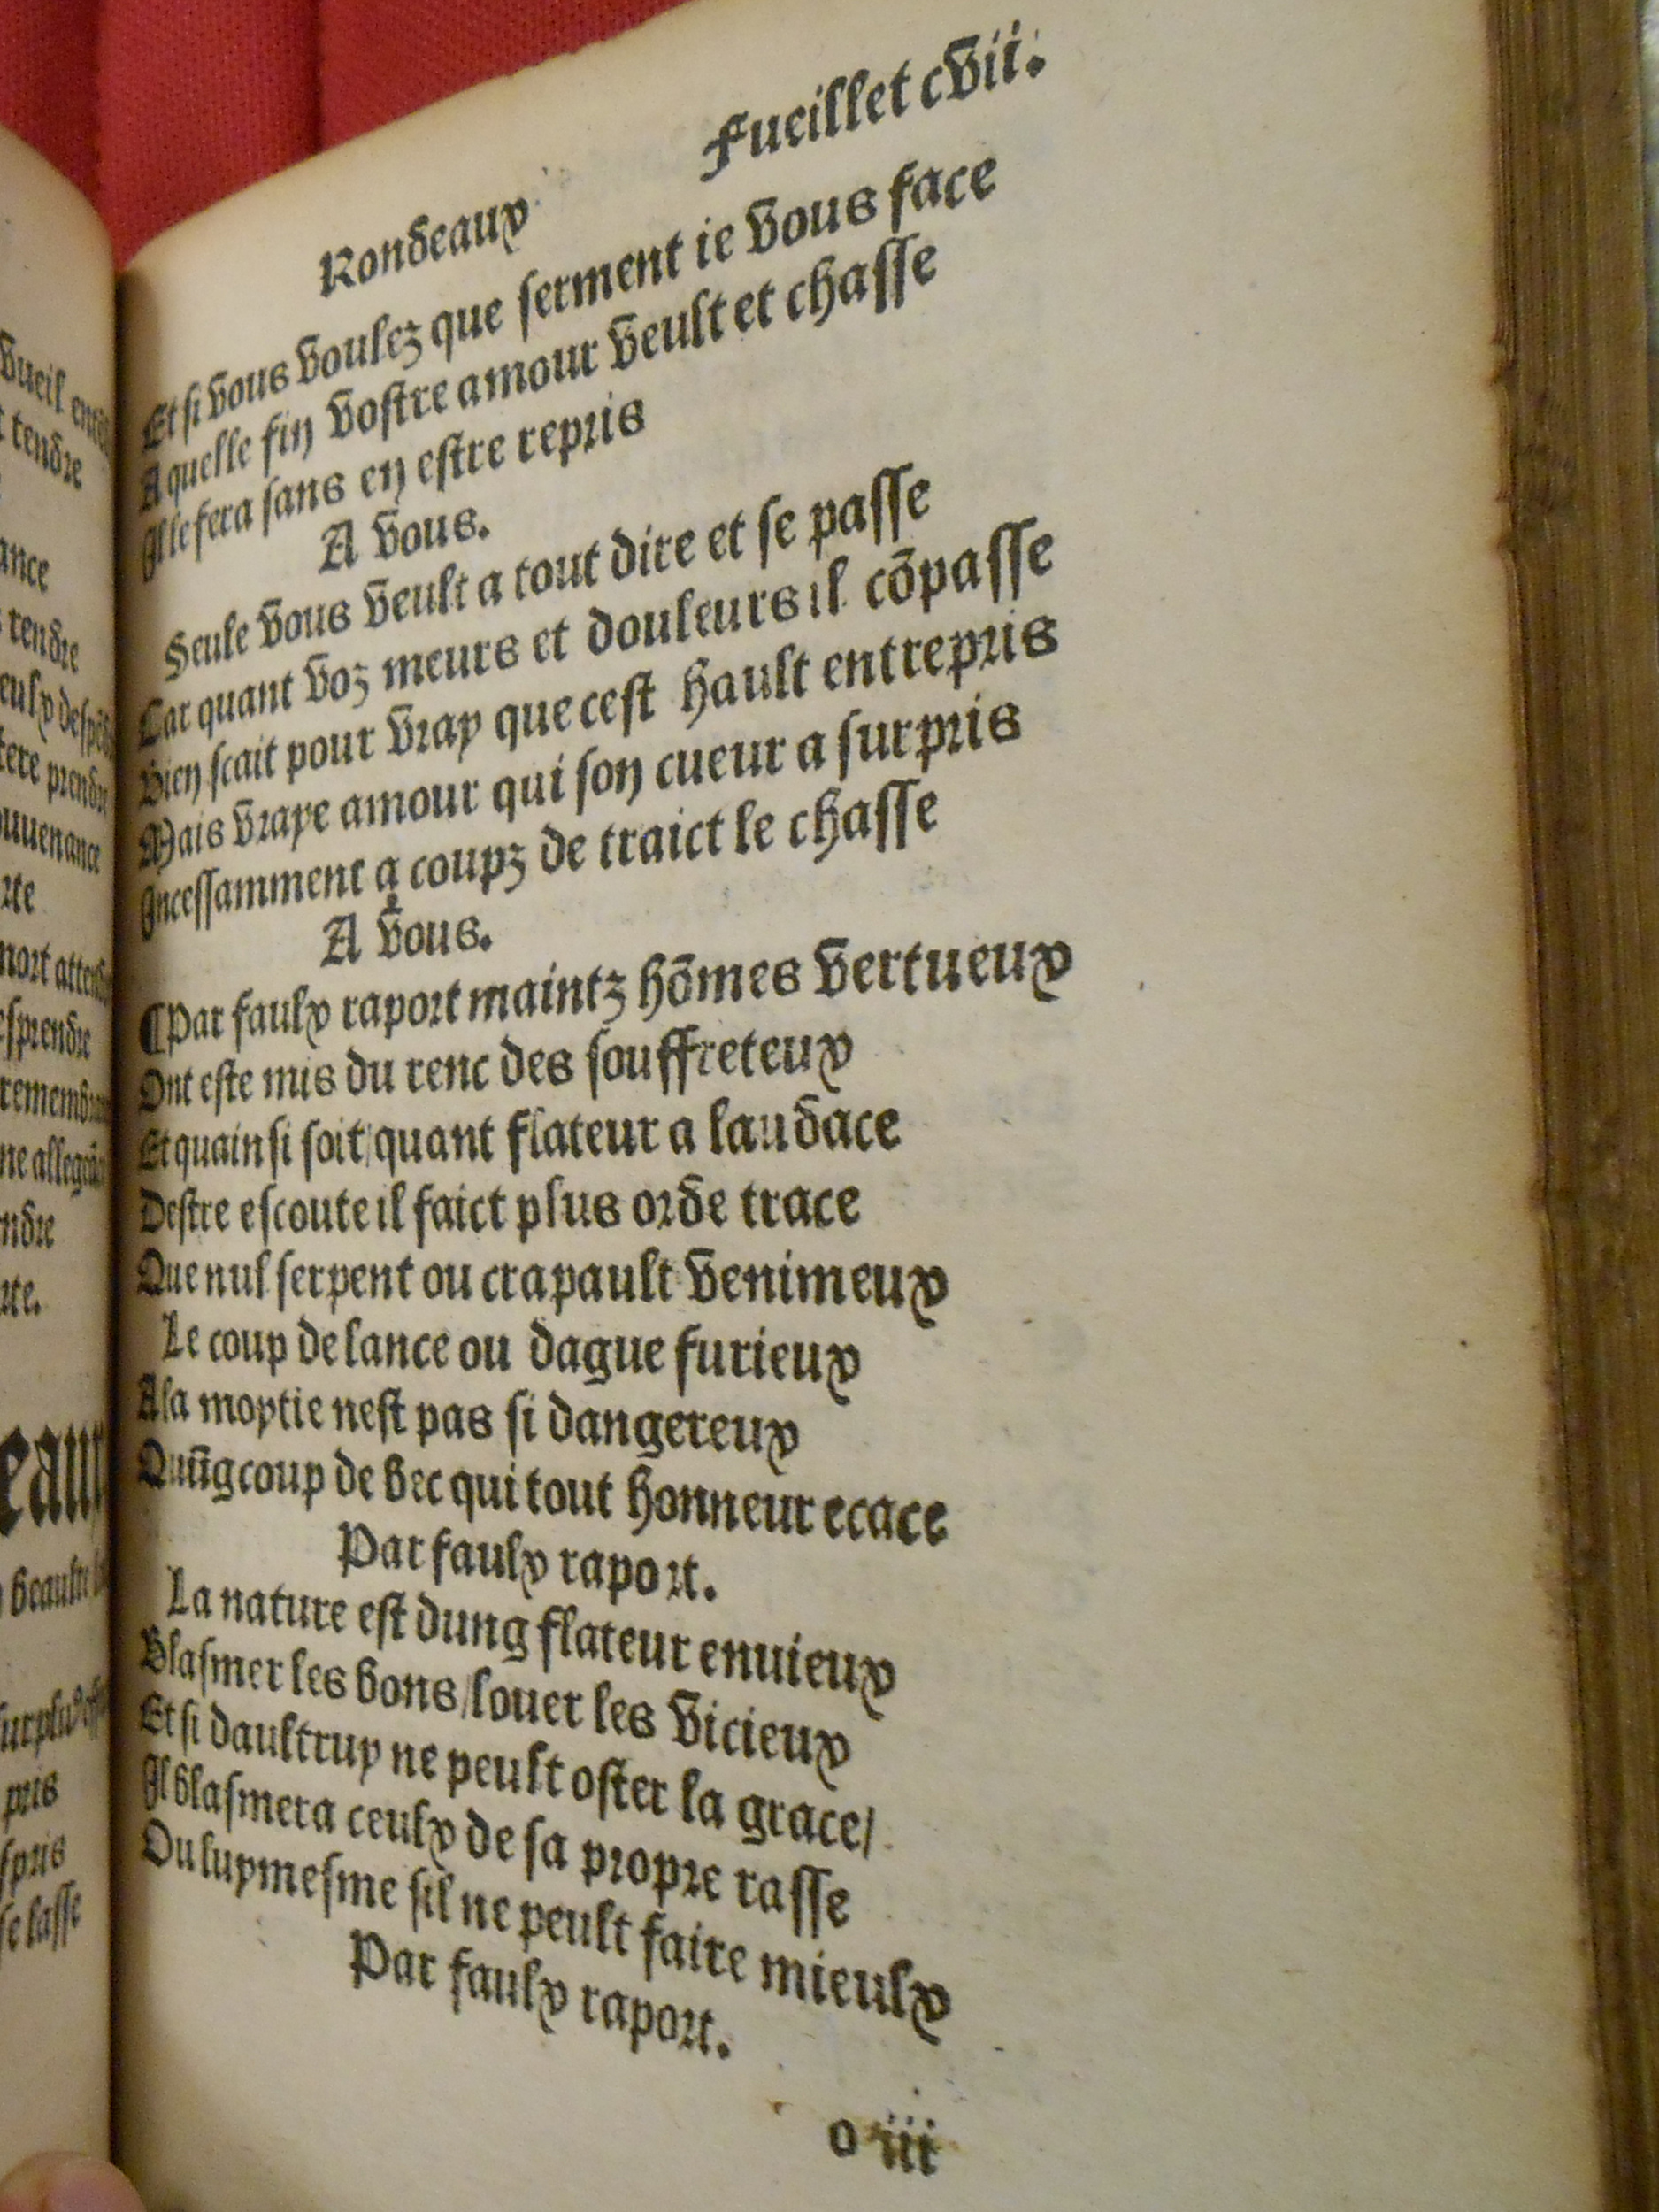 Rondeaux
Fueillet cvii.
Et si vous voulez que serment ie vous face
A quelle fin vostre amour veult et chasse
Il le fera sans en estre repris
A vous.
Seule vous veult a tout dire et se passe
Car quant voz meurs et douleurs il cõpasse
Bien scait pour vray que cest hault entrepris
Mais vraye amour qui son cueur a surpris
Incessamment a coupz de traict le chasse
A vous.
¶Par faulx raport maintz hõmes vertueux
Ont este mis du renc des souffreteux
Et quainsi soit/quant flateur a laudace
Destre escoute il faict plus orde trace
Que nul serpent ou crapault venimeux
Le coup de lance ou dague furieux
A la moytie nest pas si dangereux
Quũg coup de bec qui tout honneur ecace
Par faulx raport.
La nature est dung flateur enuieux
Blasmer les bons/louer les vicieux
Et si daultruy ne peult oster la grace/
Il blasmera ceulx de sa propre rasse
Ou luymesme sil ne peult faire mieulx
Par faulx raport.
o iii
tendre
ance
rendre
prendre
ouuenance
rte
mort
esprendre
ndre
rte.
pris
spris
se lasse